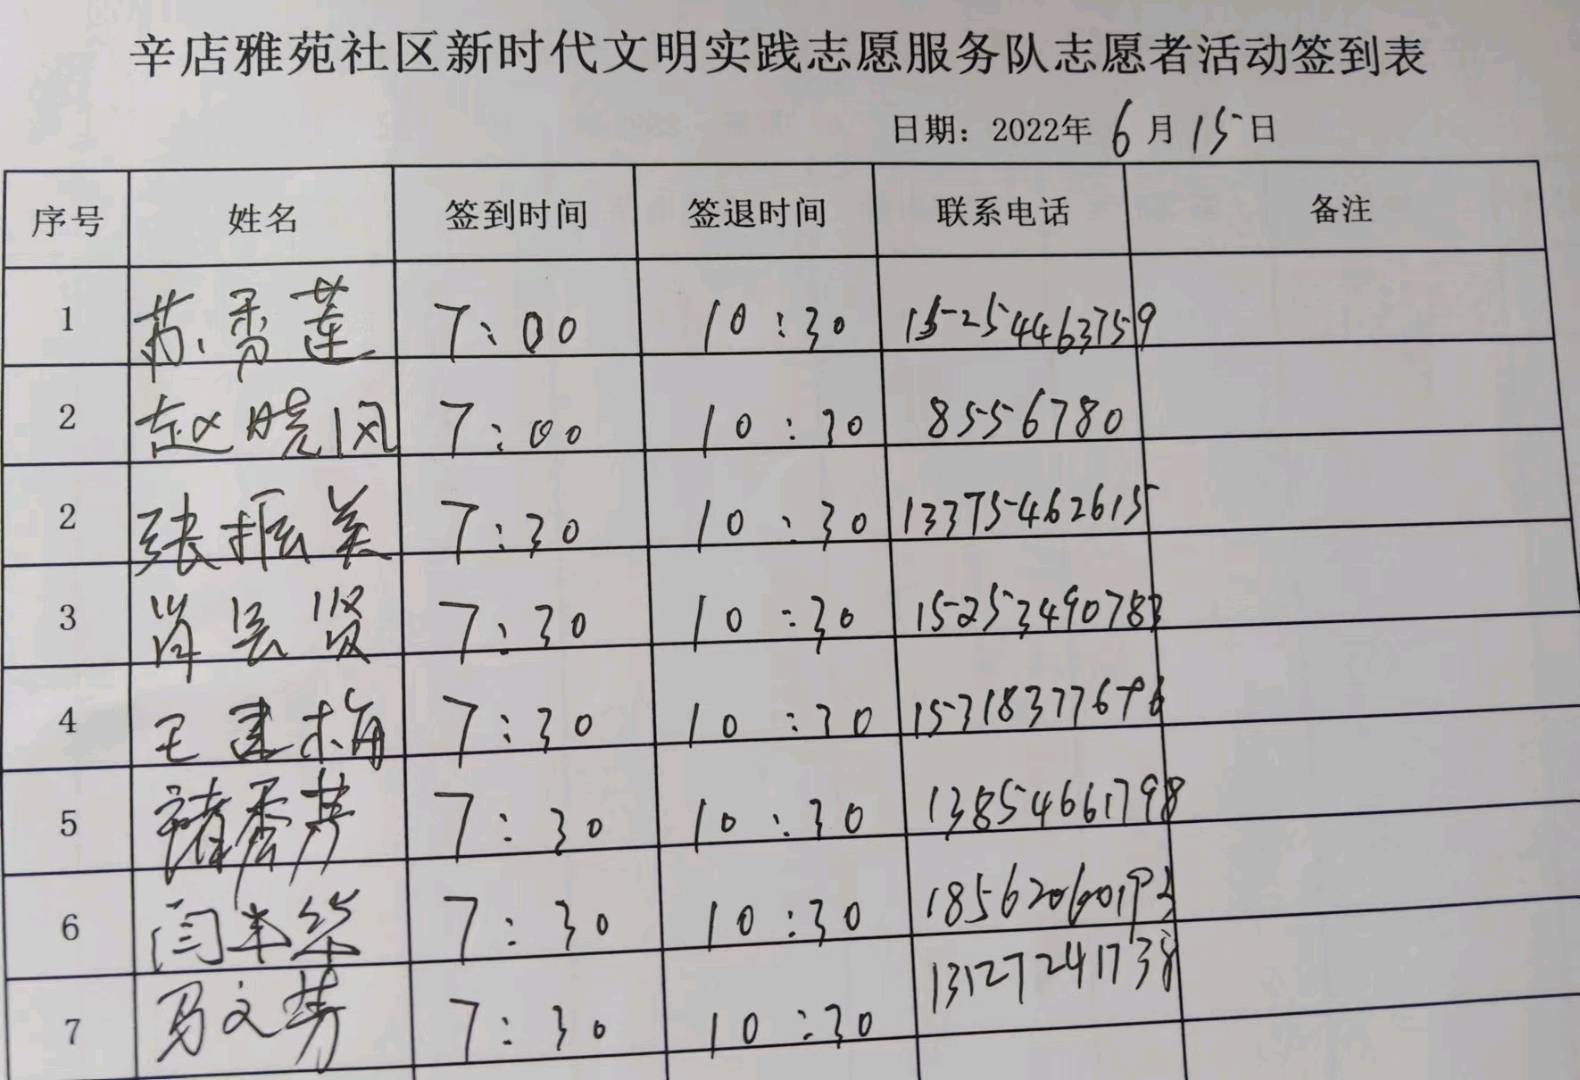 辛店雅苑社区新时代文明实践志愿服务队志愿者活动签到表
日期：2022年 6 月 15 日
序号 姓名 签到时间 签退时间 联系电话 备注
1 苏秀莲 7:00 10:30 15254463759
2 赵晓风 7:00 10:30 8556780
2 张振美 7:30 10:30 13375462615
3 肖长贤 7:30 10:30 15253490783
4 王建梅 7:30 10:30
5 褚秀芳 7:30 10:30 13854661798
6 闫 7:30 10:30 18562060193
7 马文芳 7:30 10:30 13127241738